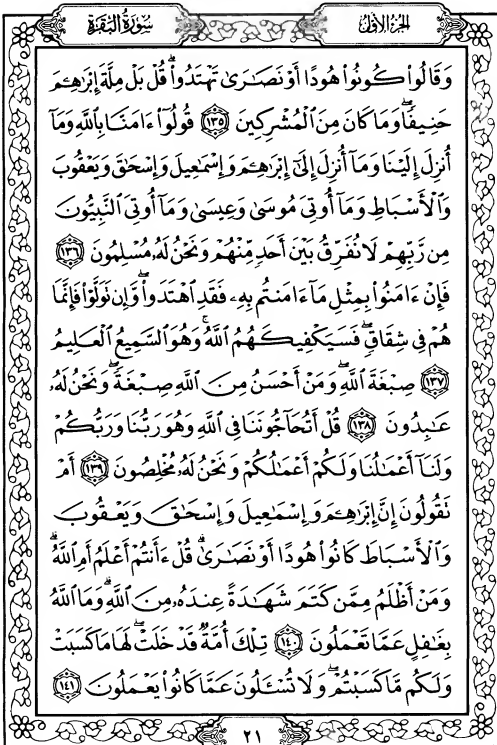 سورة البقرة
الجزء الأول
وَقَالُوا۟ كُونُوا۟ هُودًا أَوْ نَصَـٰرَىٰ تَهْتَدُوا۟ ۗ قُلْ بَلْ مِلَّةَ إِبْرَٰهِـۧمَ
حَنِيفًا ۖ وَمَا كَانَ مِنَ ٱلْمُشْرِكِينَ ١٣٥ قُولُوٓا۟ ءَامَنَّا بِٱللَّهِ وَمَآ
أُنزِلَ إِلَيْنَا وَمَآ أُنزِلَ إِلَىٰٓ إِبْرَٰهِـۧمَ وَإِسْمَـٰعِيلَ وَإِسْحَـٰقَ وَيَعْقُوبَ
وَٱلْأَسْبَاطِ وَمَآ أُوتِىَ مُوسَىٰ وَعِيسَىٰ وَمَآ أُوتِىَ ٱلنَّبِيُّونَ
مِن رَّبِّهِمْ لَا نُفَرِّقُ بَيْنَ أَحَدٍ مِّنْهُمْ وَنَحْنُ لَهُۥ مُسْلِمُونَ ١٣٦
فَإِنْ ءَامَنُوا۟ بِمِثْلِ مَآ ءَامَنتُم بِهِۦ فَقَدِ ٱهْتَدَوا۟ ۖ وَّإِن تَوَلَّوْا۟ فَإِنَّمَا
هُمْ فِى شِقَاقٍ ۖ فَسَيَكْفِيكَهُمُ ٱللَّهُ ۚ وَهُوَ ٱلسَّمِيعُ ٱلْعَلِيمُ
١٣٧ صِبْغَةَ ٱللَّهِ ۖ وَمَنْ أَحْسَنُ مِنَ ٱللَّهِ صِبْغَةً ۖ وَنَحْنُ لَهُۥ
عَـٰبِدُونَ ١٣٨ قُلْ أَتُحَآجُّونَنَا فِى ٱللَّهِ وَهُوَ رَبُّنَا وَرَبُّكُمْ
وَلَنَآ أَعْمَـٰلُنَا وَلَكُمْ أَعْمَـٰلُكُمْ وَنَحْنُ لَهُۥ مُخْلِصُونَ ١٣٩ أَمْ
تَقُولُونَ إِنَّ إِبْرَٰهِـۧمَ وَإِسْمَـٰعِيلَ وَإِسْحَـٰقَ وَيَعْقُوبَ
وَٱلْأَسْبَاطَ كَانُوا۟ هُودًا أَوْ نَصَـٰرَىٰ ۗ قُلْ ءَأَنتُمْ أَعْلَمُ أَمِ ٱللَّهُ ۗ
وَمَنْ أَظْلَمُ مِمَّن كَتَمَ شَهَـٰدَةً عِندَهُۥ مِنَ ٱللَّهِ ۗ وَمَا ٱللَّهُ
بِغَـٰفِلٍ عَمَّا تَعْمَلُونَ ١٤٠ تِلْكَ أُمَّةٌ قَدْ خَلَتْ ۖ لَهَا مَا كَسَبَتْ
وَلَكُم مَّا كَسَبْتُمْ ۖ وَلَا تُسْـَٔلُونَ عَمَّا كَانُوا۟ يَعْمَلُونَ ١٤١
٢١